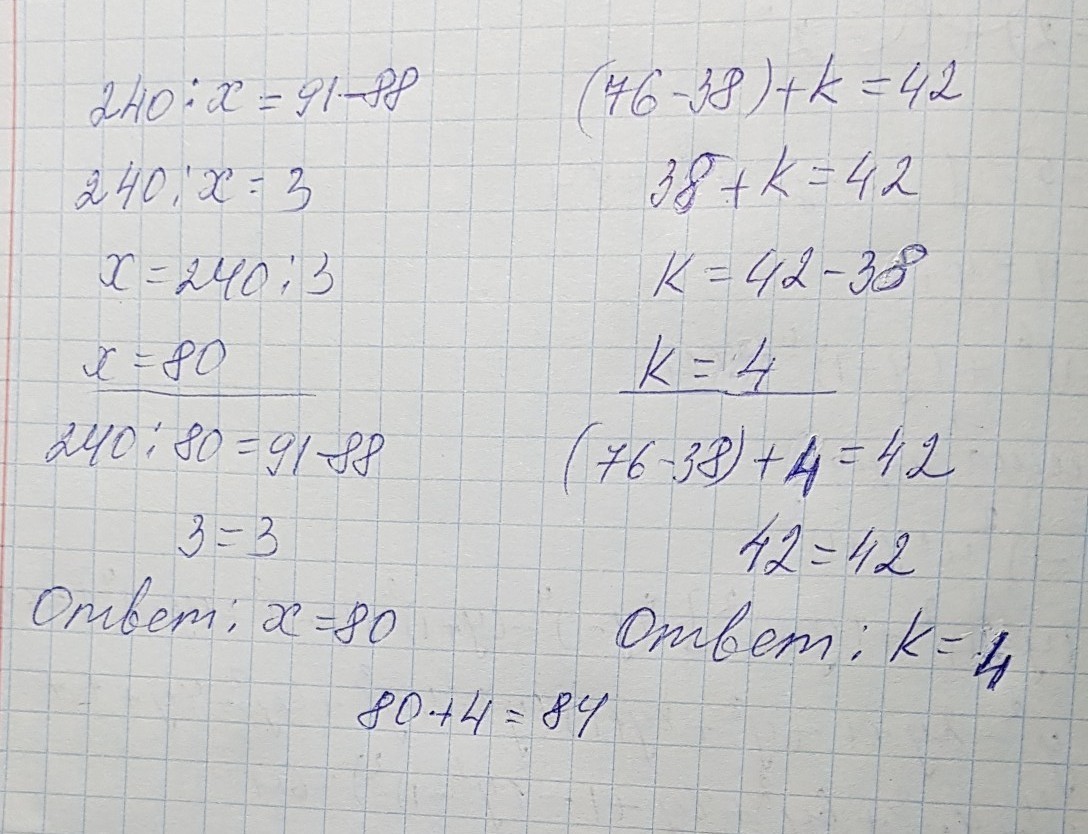 240 : x = 91 - 88
240 : x = 3
x = 240 : 3
x = 80
240 : 80 = 91 - 88
3 = 3
Ответ: x = 80
(76 - 38) + k = 42
38 + k = 42
k = 42 - 38
k = 4
(76 - 38) + 4 = 42
42 = 42
Ответ: k = 4
80 + 4 = 84